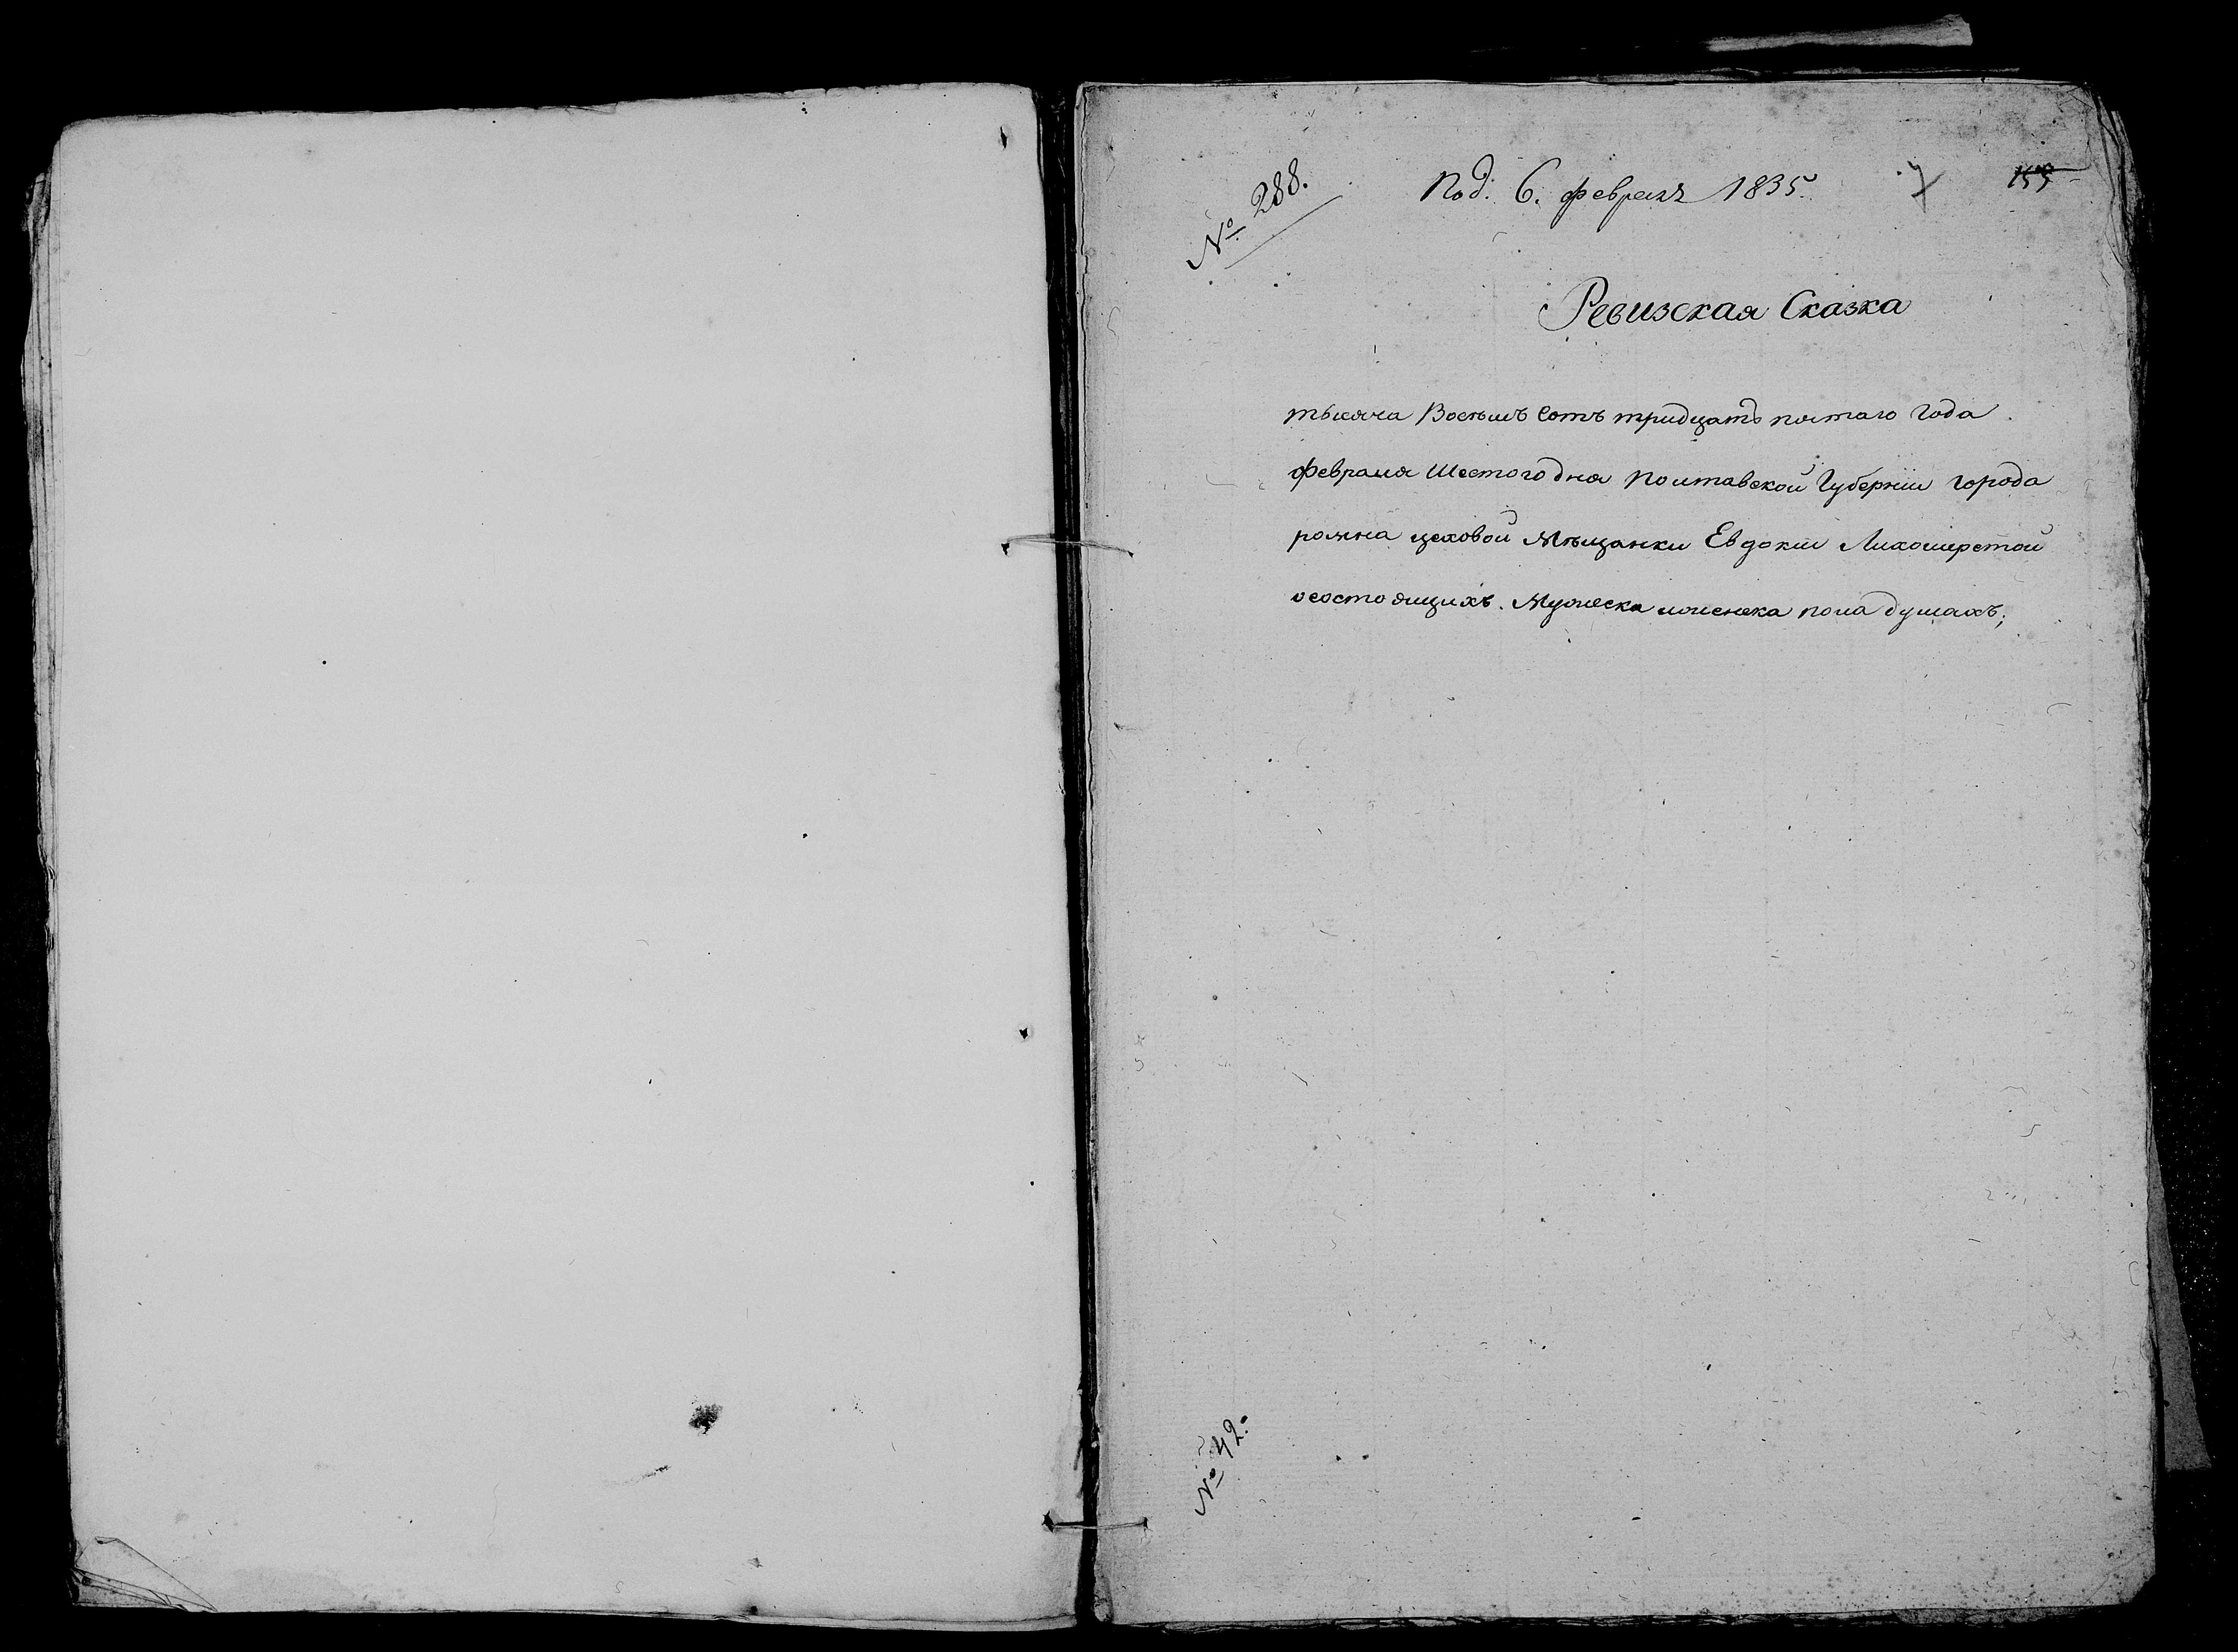 № 288.
Под: 6. февраля 1835.
7
153
Ревизская Сказка
тысяча Восемъ сотъ тридцать пятаго года
февраля Шестого дня Полтавской Губернии города
ромна цеховой Мещанки Евдокии Лихошерстой
осостоящихъ. Мужеска иженска пола душахъ;
№ 42.